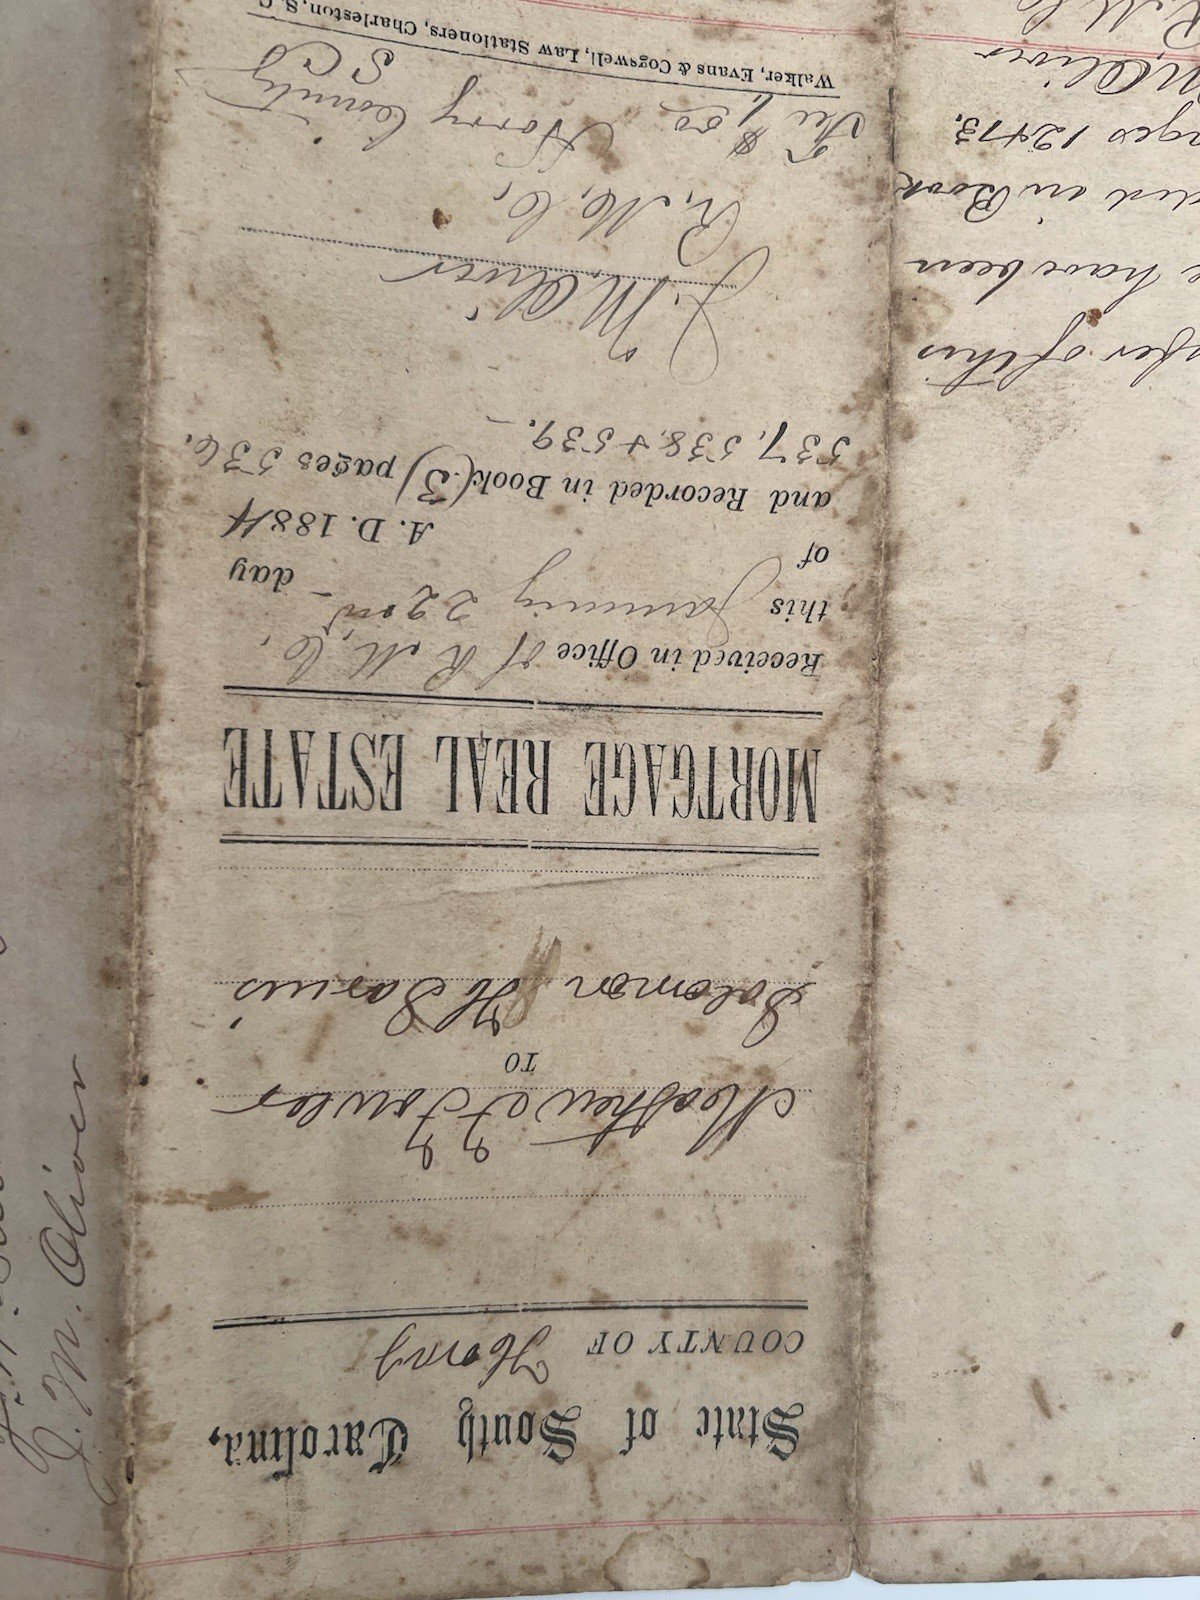 State of South Carolina,
COUNTY OF Horry
Mathew F Fowler
TO
Solomon H Sarvis
MORTGAGE REAL ESTATE
Received in Office of R. M. C.
this January 22nd day
of A. D. 1884
and Recorded in Book (3) pages 536.
537, 538, + 539. —
J. M. Oliver
R. M. C.
Fee $1,00 Horry County
S C
Walker, Evans & Cogswell, Law Stationers, Charleston, S. C.
of this
have been
in Book
12 + 13.
M Oliver
R. M. C.
J. M. Oliver